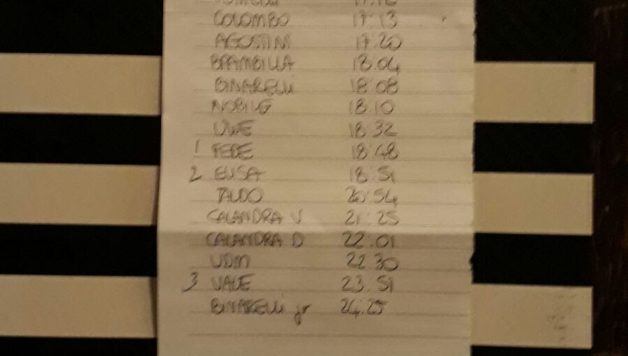 COLOMBO 17.13
AGOSTINI 17.20
BRAMBILLA 18.04
BINARELLI 18.08
NOBILE 18.10
UWE 18.32
1 FEDE 18.48
2 ELISA 18.51
TALDO 20.54
CALANDRA V 21.25
CALANDRA D 22.01
22.30
3 VALE 23.51
BINARELLI jr 24.25